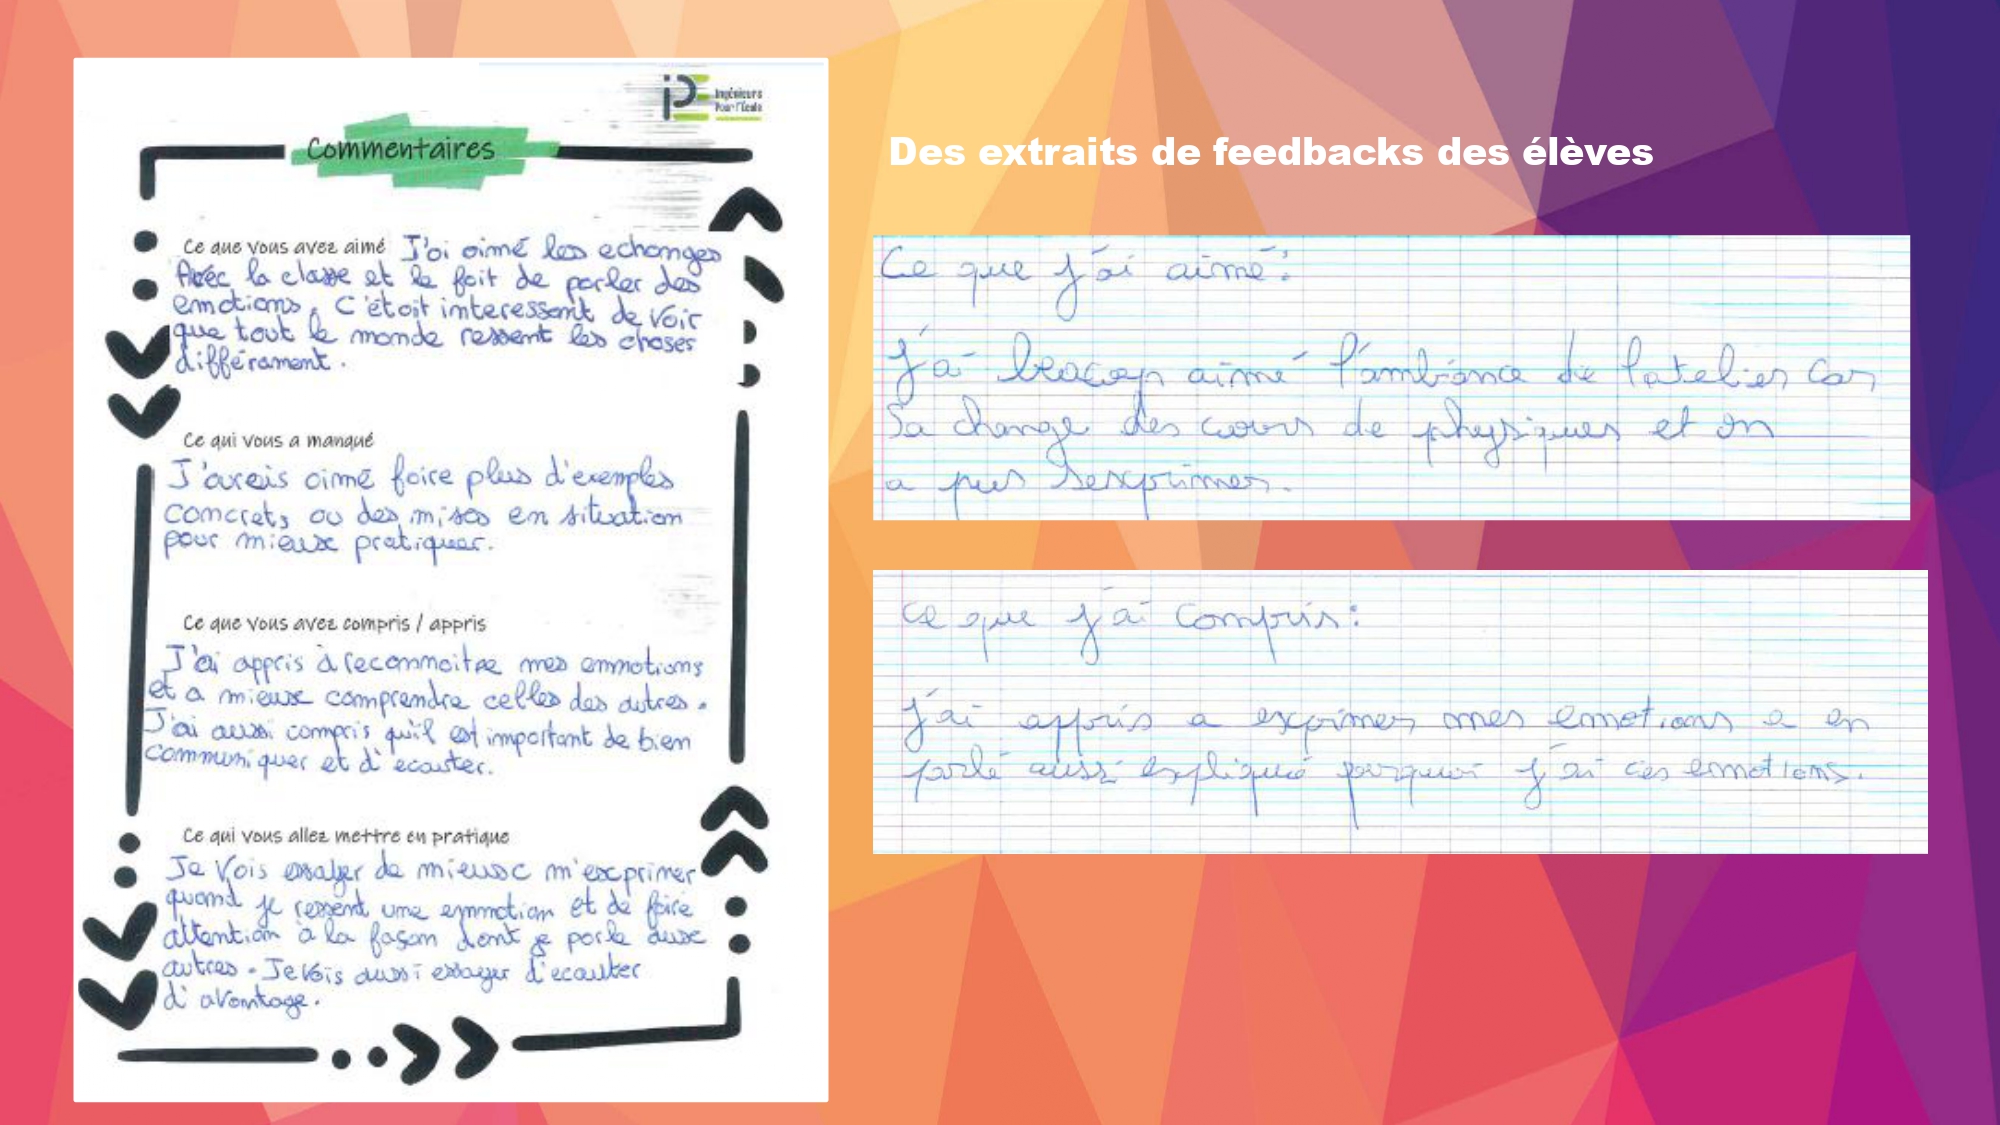 iPE Ingénieurs
Pour l'École
Commentaires
Ce que vous avez aimé J'ai aimé les echanges
Avec la classe et le fait de parler des
emotions, C'était interessant de voir
que tout le monde ressent les choses
différament.
Ce qui vous a manqué
J'aurais aimé faire plus d'exemples
concrets ou des mises en situation
pour mieux pratiquer.
Ce que vous avez compris / appris
J'ai appris à reconnoitre mes emmotions
et a mieux comprendre celles des autres.
J'ai aussi compris qu'il est important de bien
communiquer et d'ecouter.
Ce qui vous allez mettre en pratique
Je vais essayer de mieux m'exprimer
quand je ressent une emmotion et de faire
attention à la façon dont je parle aux
autres. Je vais aussi essayer d'ecouter
d'avantage.
Des extraits de feedbacks des élèves
Ce que j'ai aimé:
J'ai beacop aimé l'ambiance de l'atelier car
Sa change des cours de physiques et on
a pus s'exprimer.
Ce que j'ai compris:
j'ai appris a exprimer mes emotions a en
parlé aussi expliqué pourquoi j'ai ces emotions.